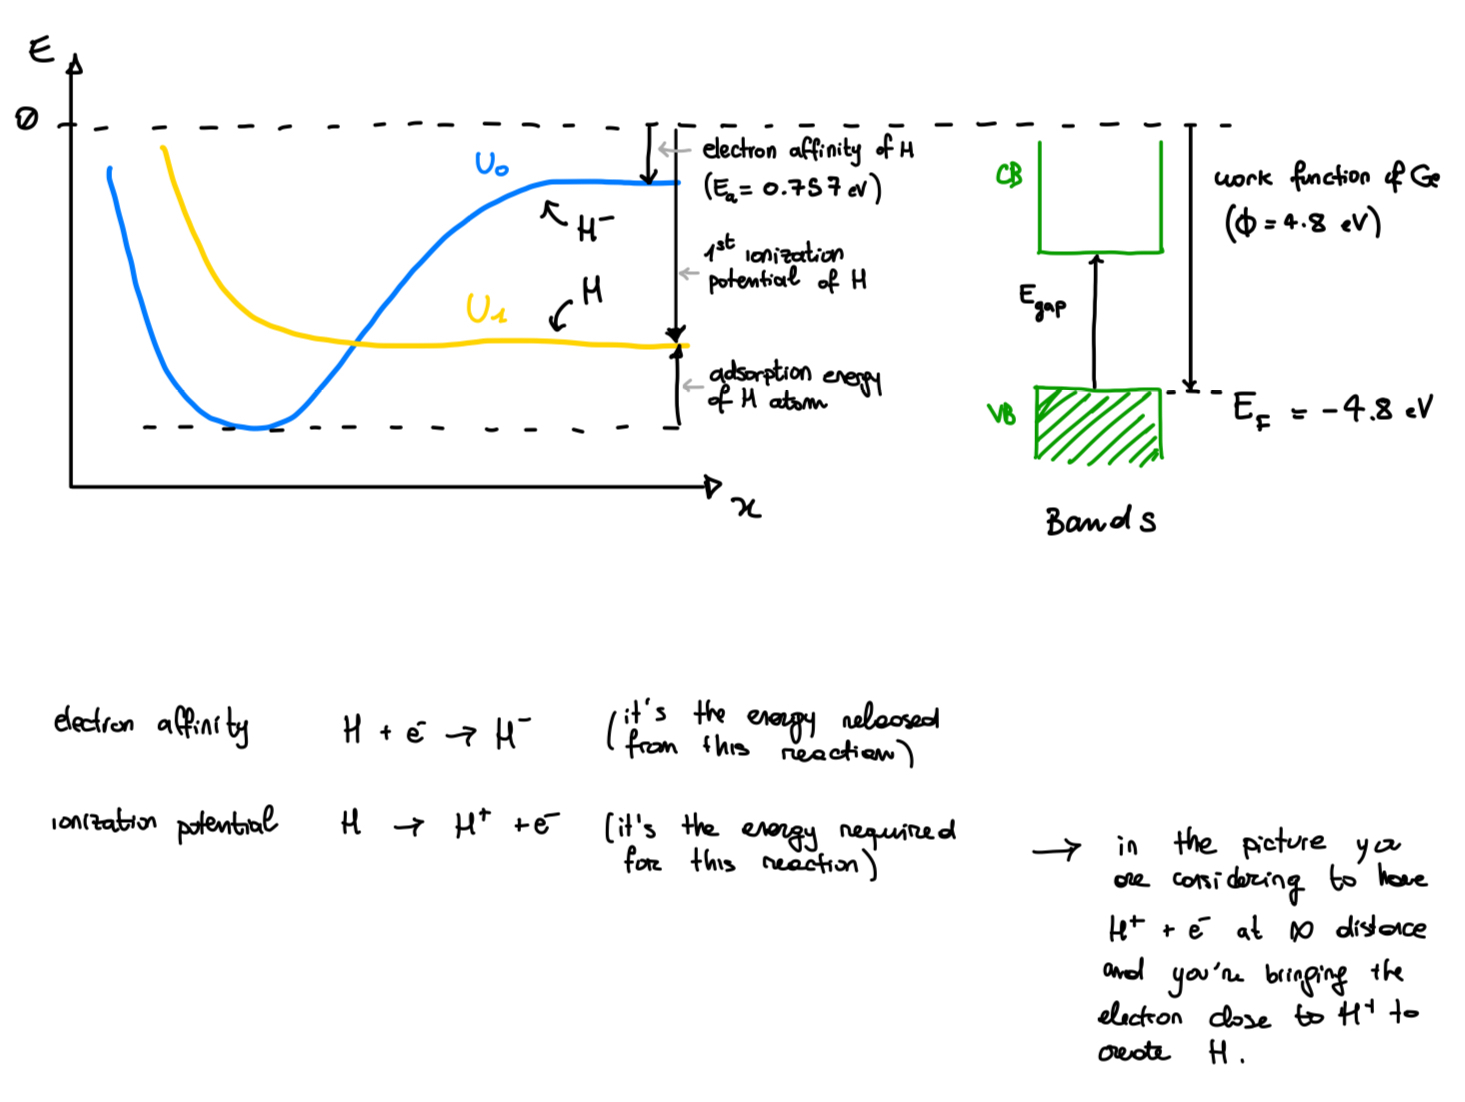 E
0
U₀
electron affinity of H
(Eₐ = 0.757 eV)
H⁻
1st ionization
potential of H
H
U₁
adsorption energy
of H atom
x
CB
work function of Ge
(ϕ = 4.8 eV)
E_gap
VB
E_F = -4.8 eV
Bands
electron affinity H + e⁻ → H⁻ (it's the energy released
from this reaction)
ionization potential H → H⁺ + e⁻ (it's the energy required
for this reaction)
→ in the picture you
are considering to have
H⁺ + e⁻ at ∞ distance
and you're bringing the
electron close to H⁺ to
create H.